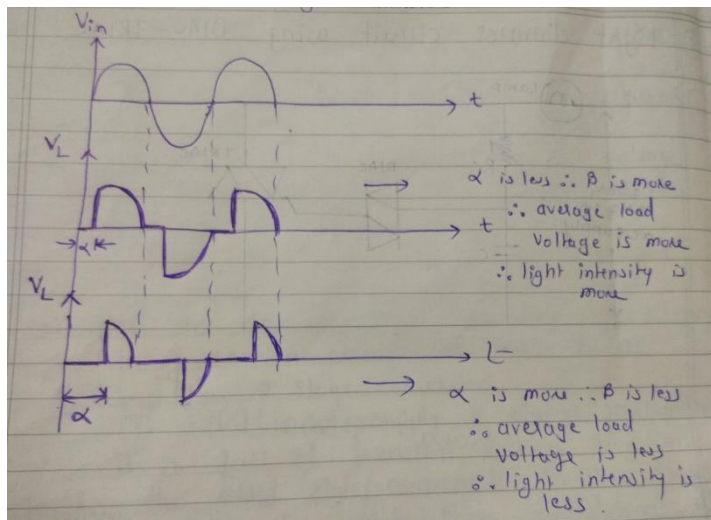 Vin
t
VL
α is less ∴ β is more
∴ average load
t
voltage is more
α
∴ light intensity is
more
VL
t
α is more ∴ β is less
α
∴ average load
voltage is less
∴ light intensity is
less.